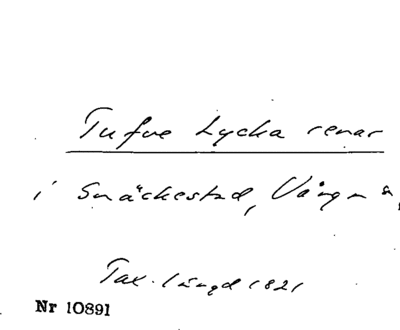 Tufve Lycka renar
i Snäckestad, Vånga
Tax. längd 1821
Nr 10891